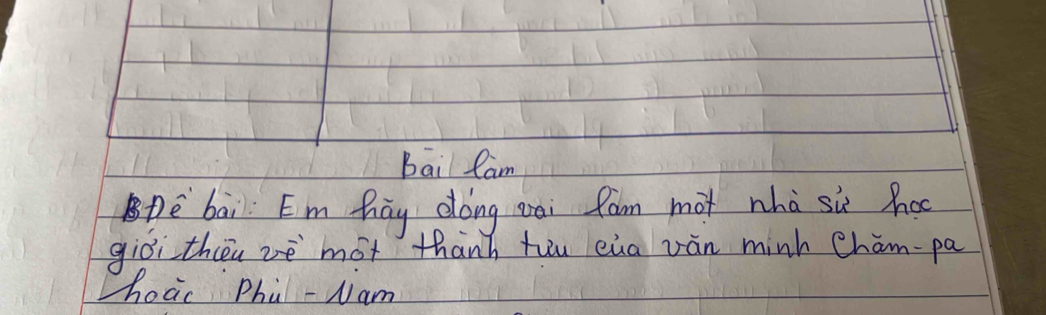 Bài làm
Đề bài: Em hãy đóng vai làm một nhà sử học
giới thiệu về một thành tựu của văn minh Chăm-pa
hoặc Phù-Nam